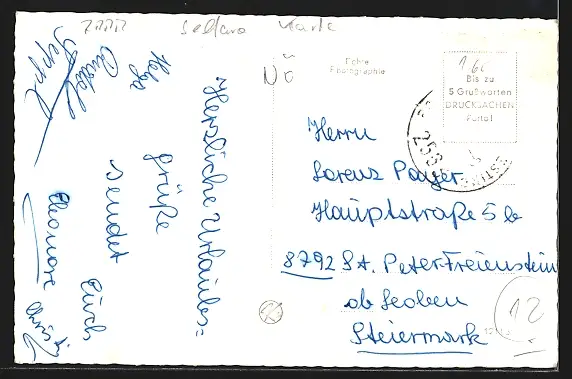 seltene Karte
NÖ
Echte
Photographie
160
Bis zu
5 Grußworten
DRUCKSACHEN
Porto!
Herzliche Urlaubs=
grüße
sendet
Euch
Eleonore
Christl
Helga
Seppl
Herrn
Lorenz Payer
Hauptstraße 5b
8792 St. Peter-Freienstein
ob Leoben
Steiermark
12